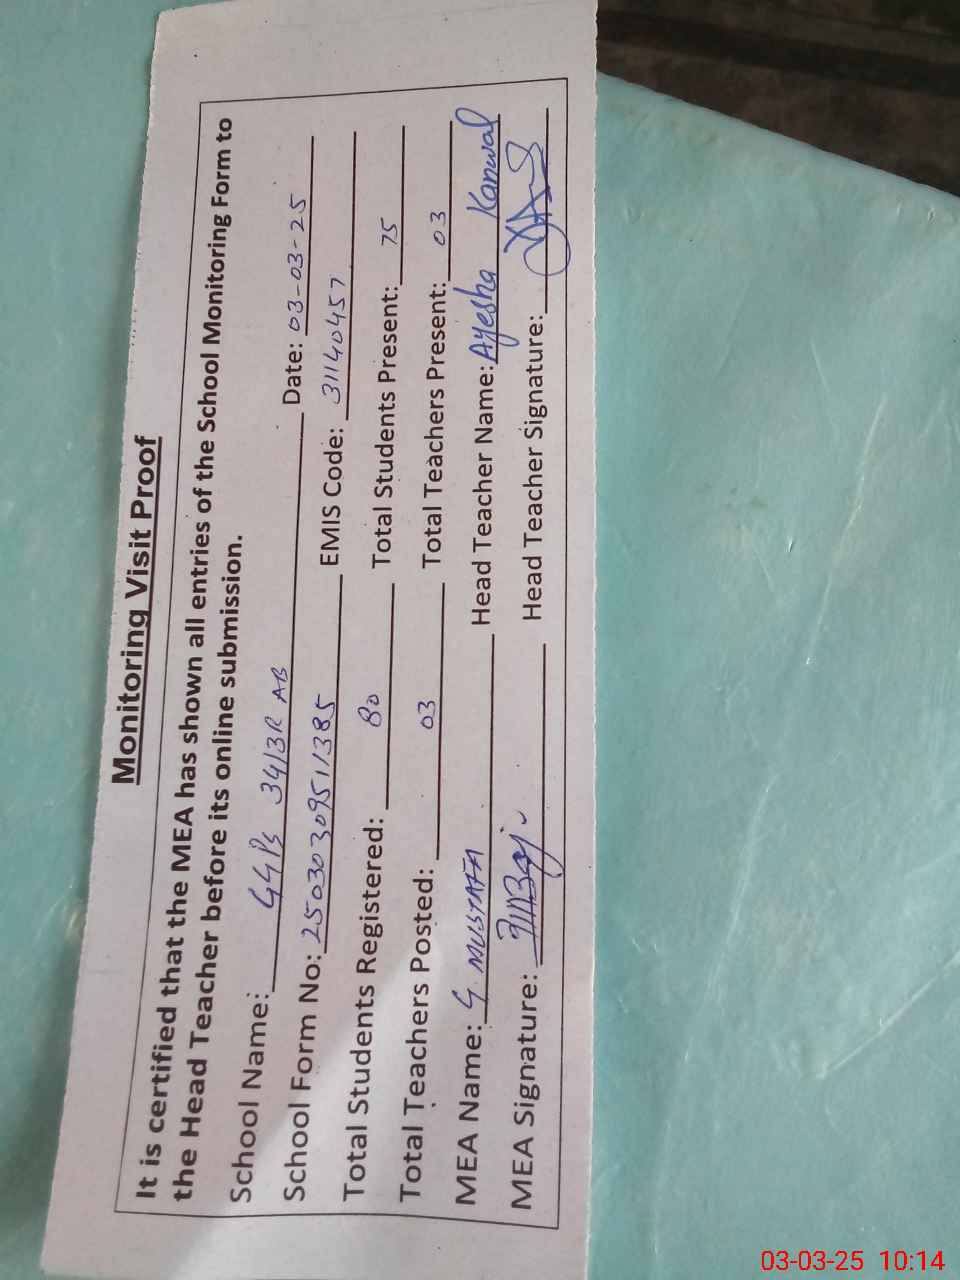 Monitoring Visit Proof
It is certified that the MEA has shown all entries of the School Monitoring Form to
the Head Teacher before its online submission.
School Name: GGPS 34/3R AB Date: 03-03-25
School Form No: 25030309511385 EMIS Code: 31140457
Total Students Registered: 80 Total Students Present: 75
Total Teachers Posted: 03 Total Teachers Present: 03
MEA Name: G. MUSTAFA Head Teacher Name: Ayesha Kanwal
MEA Signature: Head Teacher Signature:
03-03-25 10:14